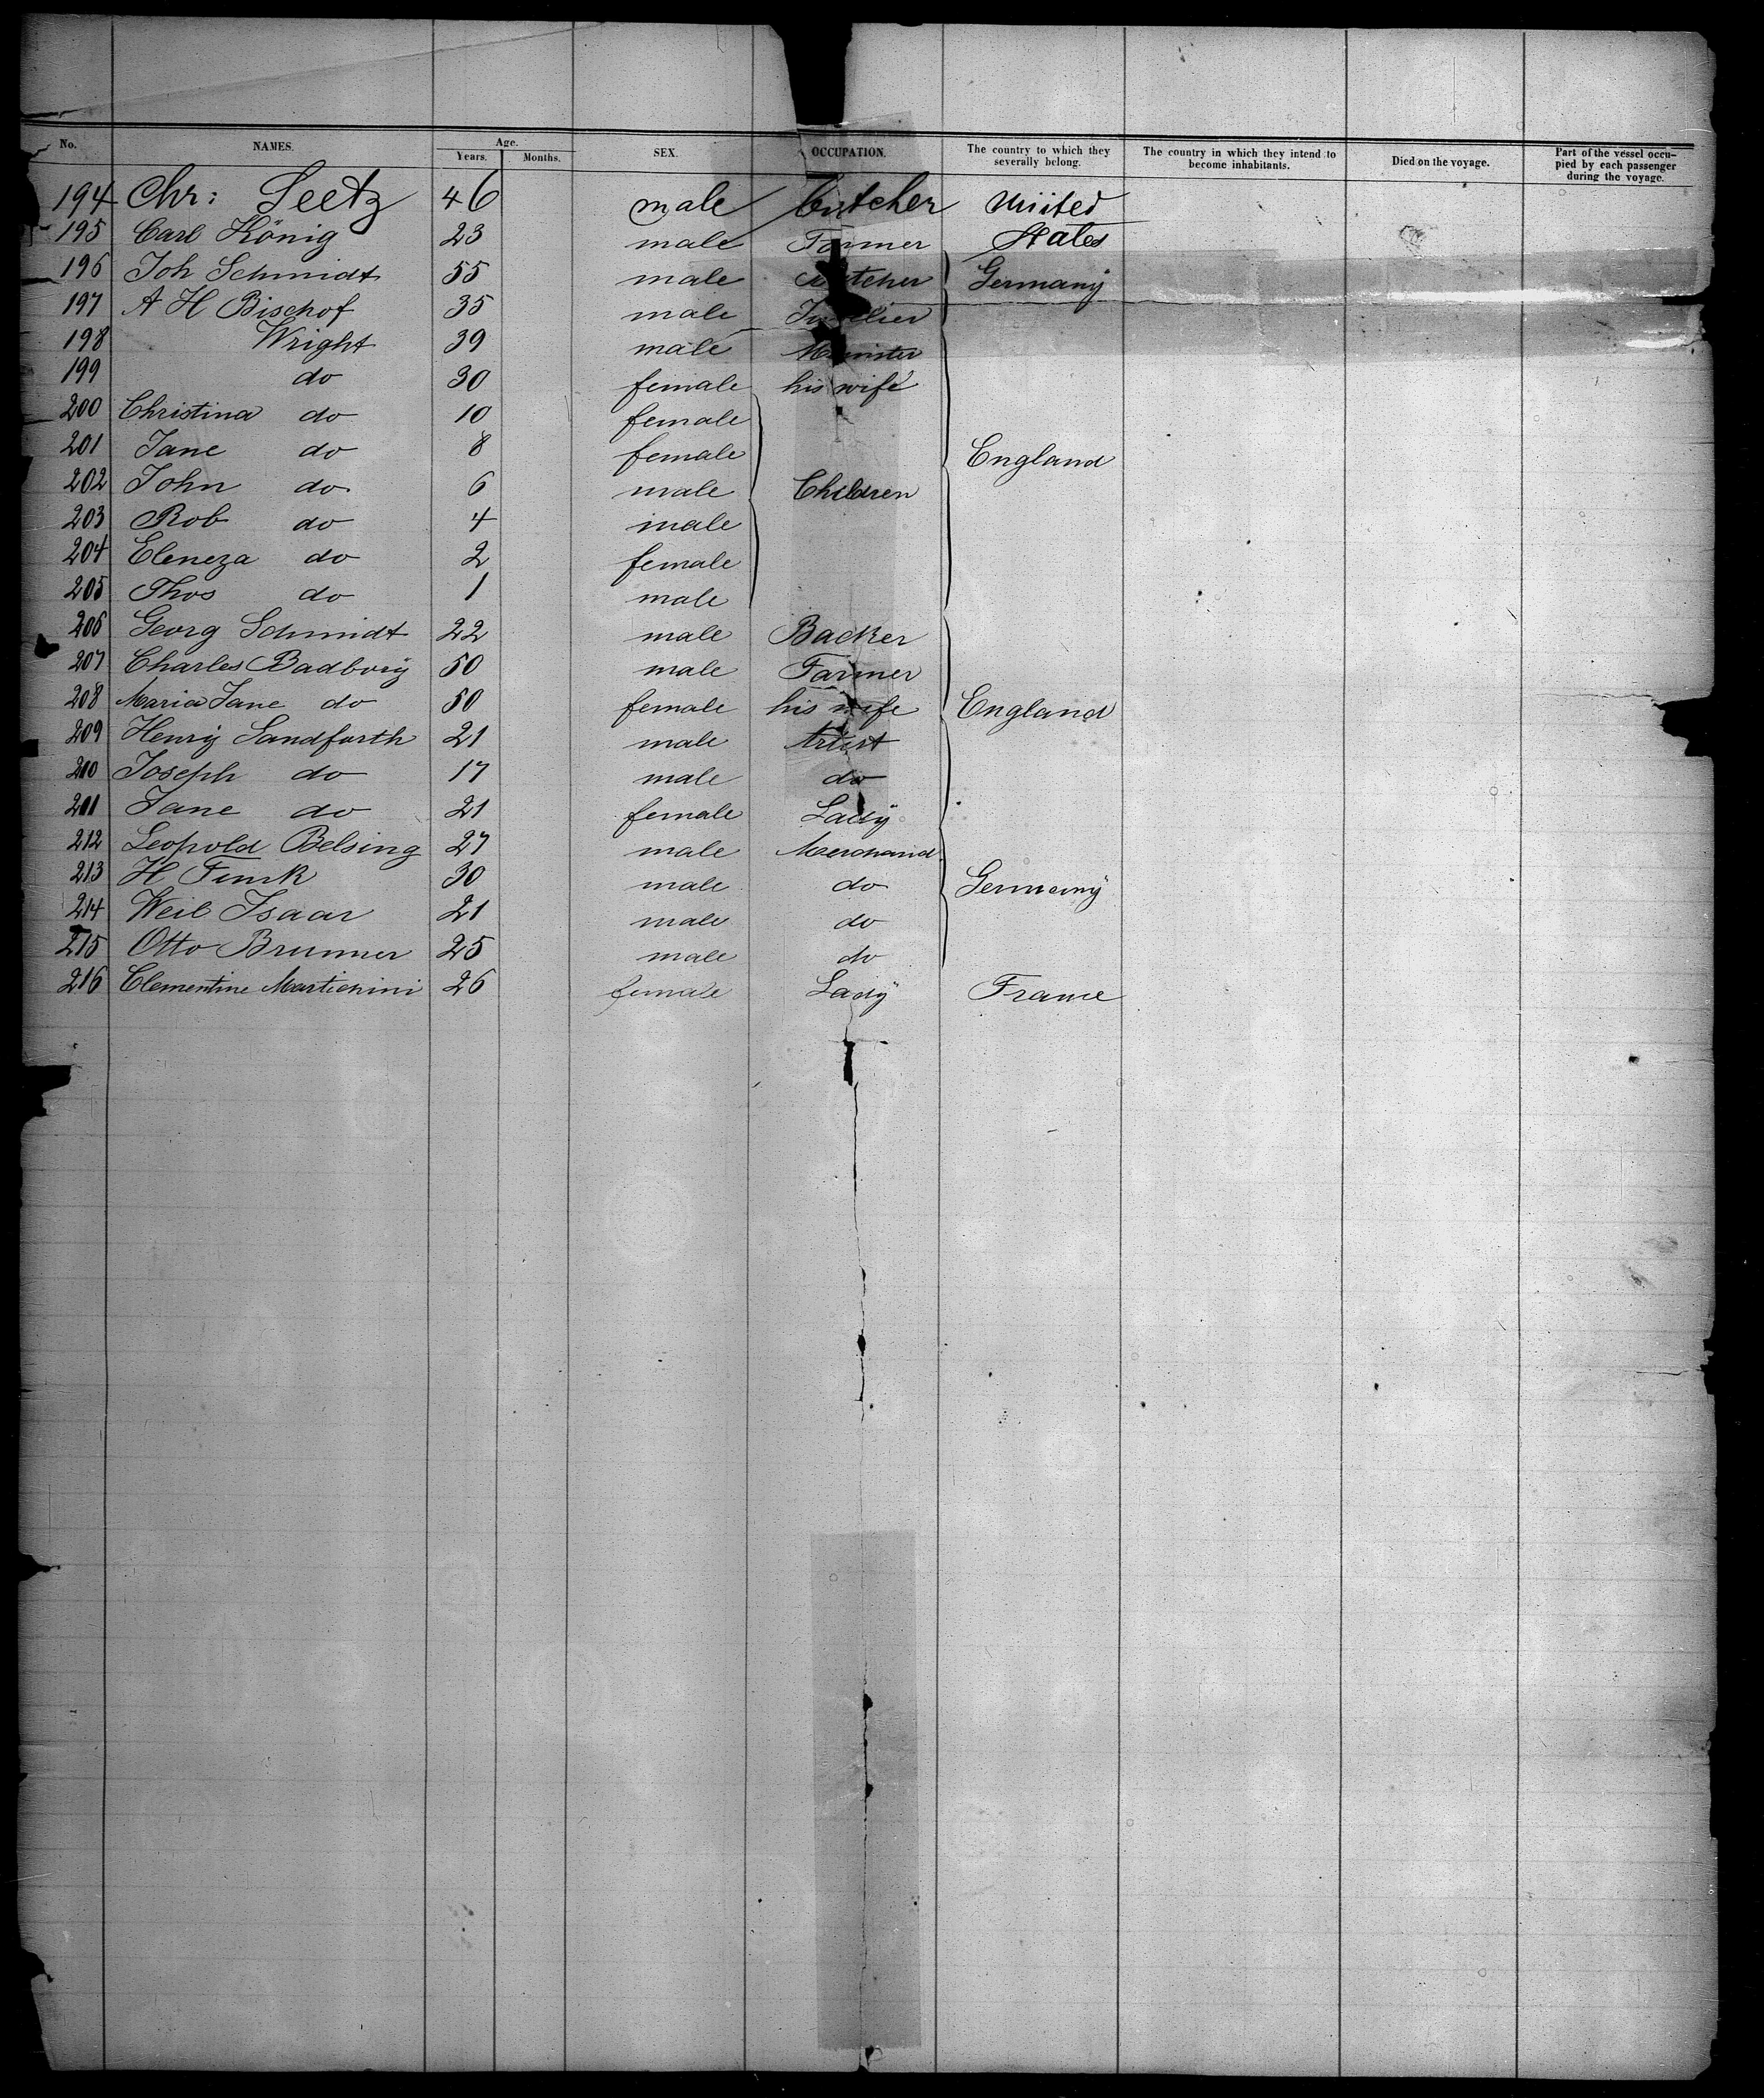 No. NAMES. Age. Years. Months. SEX. OCCUPATION. The country to which they severally belong. The country in which they intend to become inhabitants. Died on the voyage. Part of the vessel occupied by each passenger during the voyage.
194 Chr: Seetz 46 male butcher United
195 Carl König 23 male Farmer States
196 Joh Schmidt 55 male butcher Germany
197 A H Bischof 35 male
198 Wright 39 male Minister
199 do 30 female his wife
200 Christina do 10 female
201 Jane do 8 female England
202 John do 6 male Children
203 Rob do 4 male
204 Eleneza do 2 female
205 Thos do 1 male
206 Georg Schmidt 22 male Backer
207 Charles Badbury 50 male Farmer
208 Maria Jane do 50 female his wife England
209 Henry Sandforth 21 male Artist
210 Joseph do 17 male do
201 Jane do 21 female Lady
212 Leopold Belsing 27 male Merchand
213 H Funk 30 male do Germany
214 Weil Isaar 21 male do
215 Otto Brunner 25 male do
216 Clementine Martichini 26 female Lady France